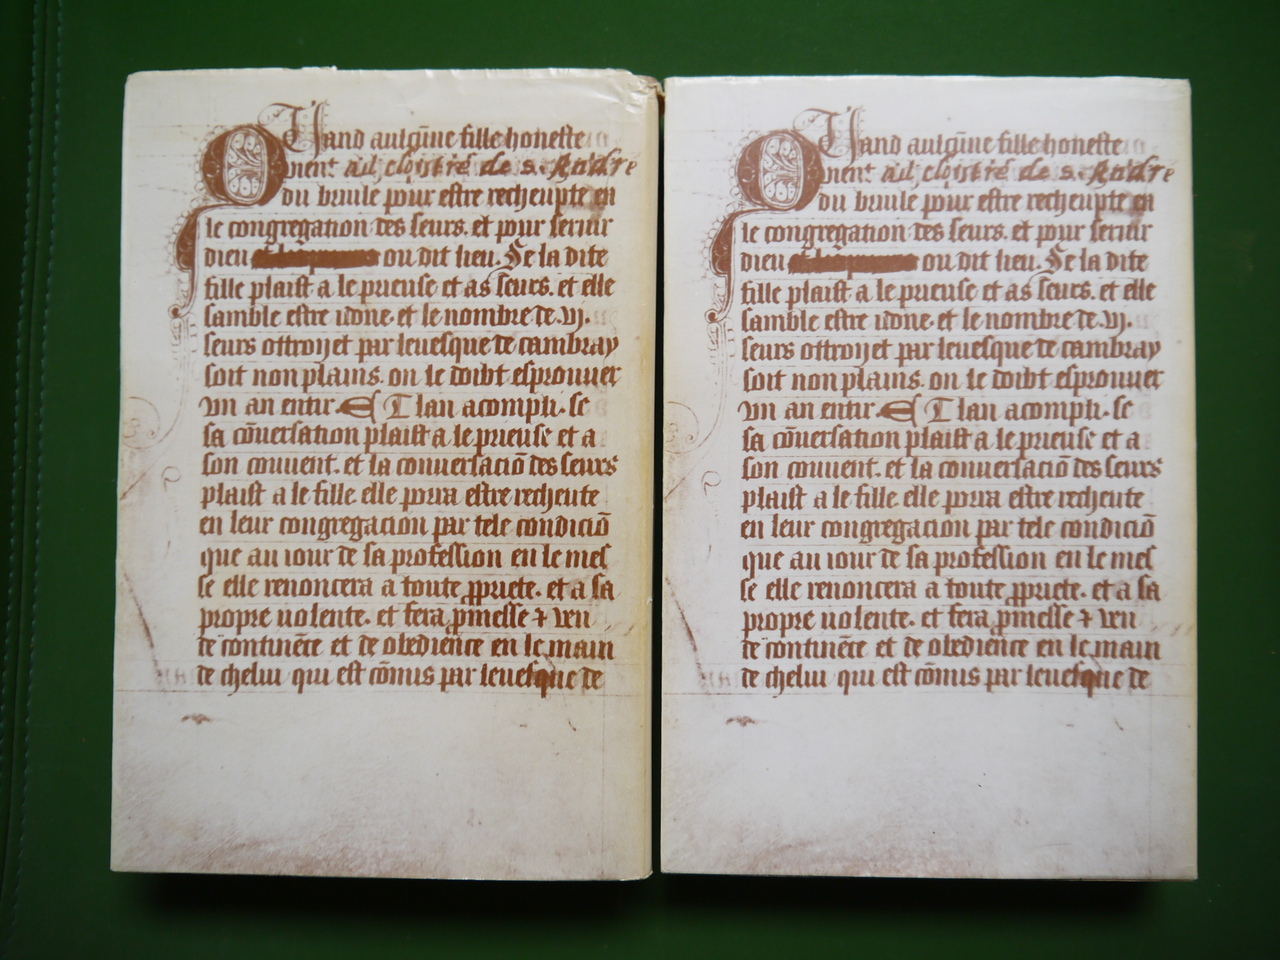 Quand aulcūne fille honeste
uient ad cloistre de s. Andre
du bruile pour estre recheupte en
le congregation des seurs. et pour seruir
dieu ou dit lieu. Se la dite
fille plaist a le prieuse et as seurs. et elle
samble estre idone. et le nombre de .vj.
seurs ottroijet par leuesque de cambray
soit non plains. on le doibt esprouuer
vn an entir. Et lan acompli. se
sa cōuersation plaist a le prieuse et a
son couuent. et la conuersaciō des seurs
plaist a le fille elle pora estre recheute
en leur congregacion par tele condiciō
que au iour de sa profession en le mes
se elle renoncera a toute ꝓpriete. et a sa
propre uolente. et fera ꝓmesse ⁊ veu
de continēce et de obedience en le main
de chelui qui est cōmis par leuesque de
Quand aulcūne fille honeste
uient ad cloistre de s. Andre
du bruile pour estre recheupte en
le congregation des seurs. et pour seruir
dieu ou dit lieu. Se la dite
fille plaist a le prieuse et as seurs. et elle
samble estre idone. et le nombre de .vj.
seurs ottroijet par leuesque de cambray
soit non plains. on le doibt esprouuer
vn an entir. Et lan acompli. se
sa cōuersation plaist a le prieuse et a
son couuent. et la conuersaciō des seurs
plaist a le fille elle pora estre recheute
en leur congregacion par tele condiciō
que au iour de sa profession en le mes
se elle renoncera a toute ꝓpriete. et a sa
propre uolente. et fera ꝓmesse ⁊ veu
de continēce et de obedience en le main
de chelui qui est cōmis par leuesque de